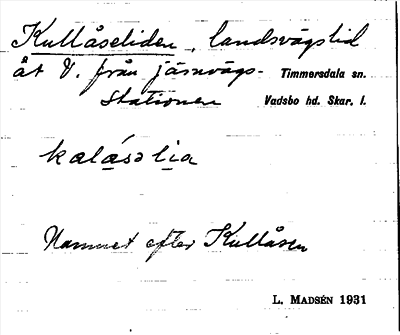 Kullåseliden, landsvägslid
åt V. från järnvägs- Timmersdala sn.
stationen Vadsbo hd. Skar. l.
kalåsəlia
Namnet efter Kullåsen
L. MADSÉN 1931